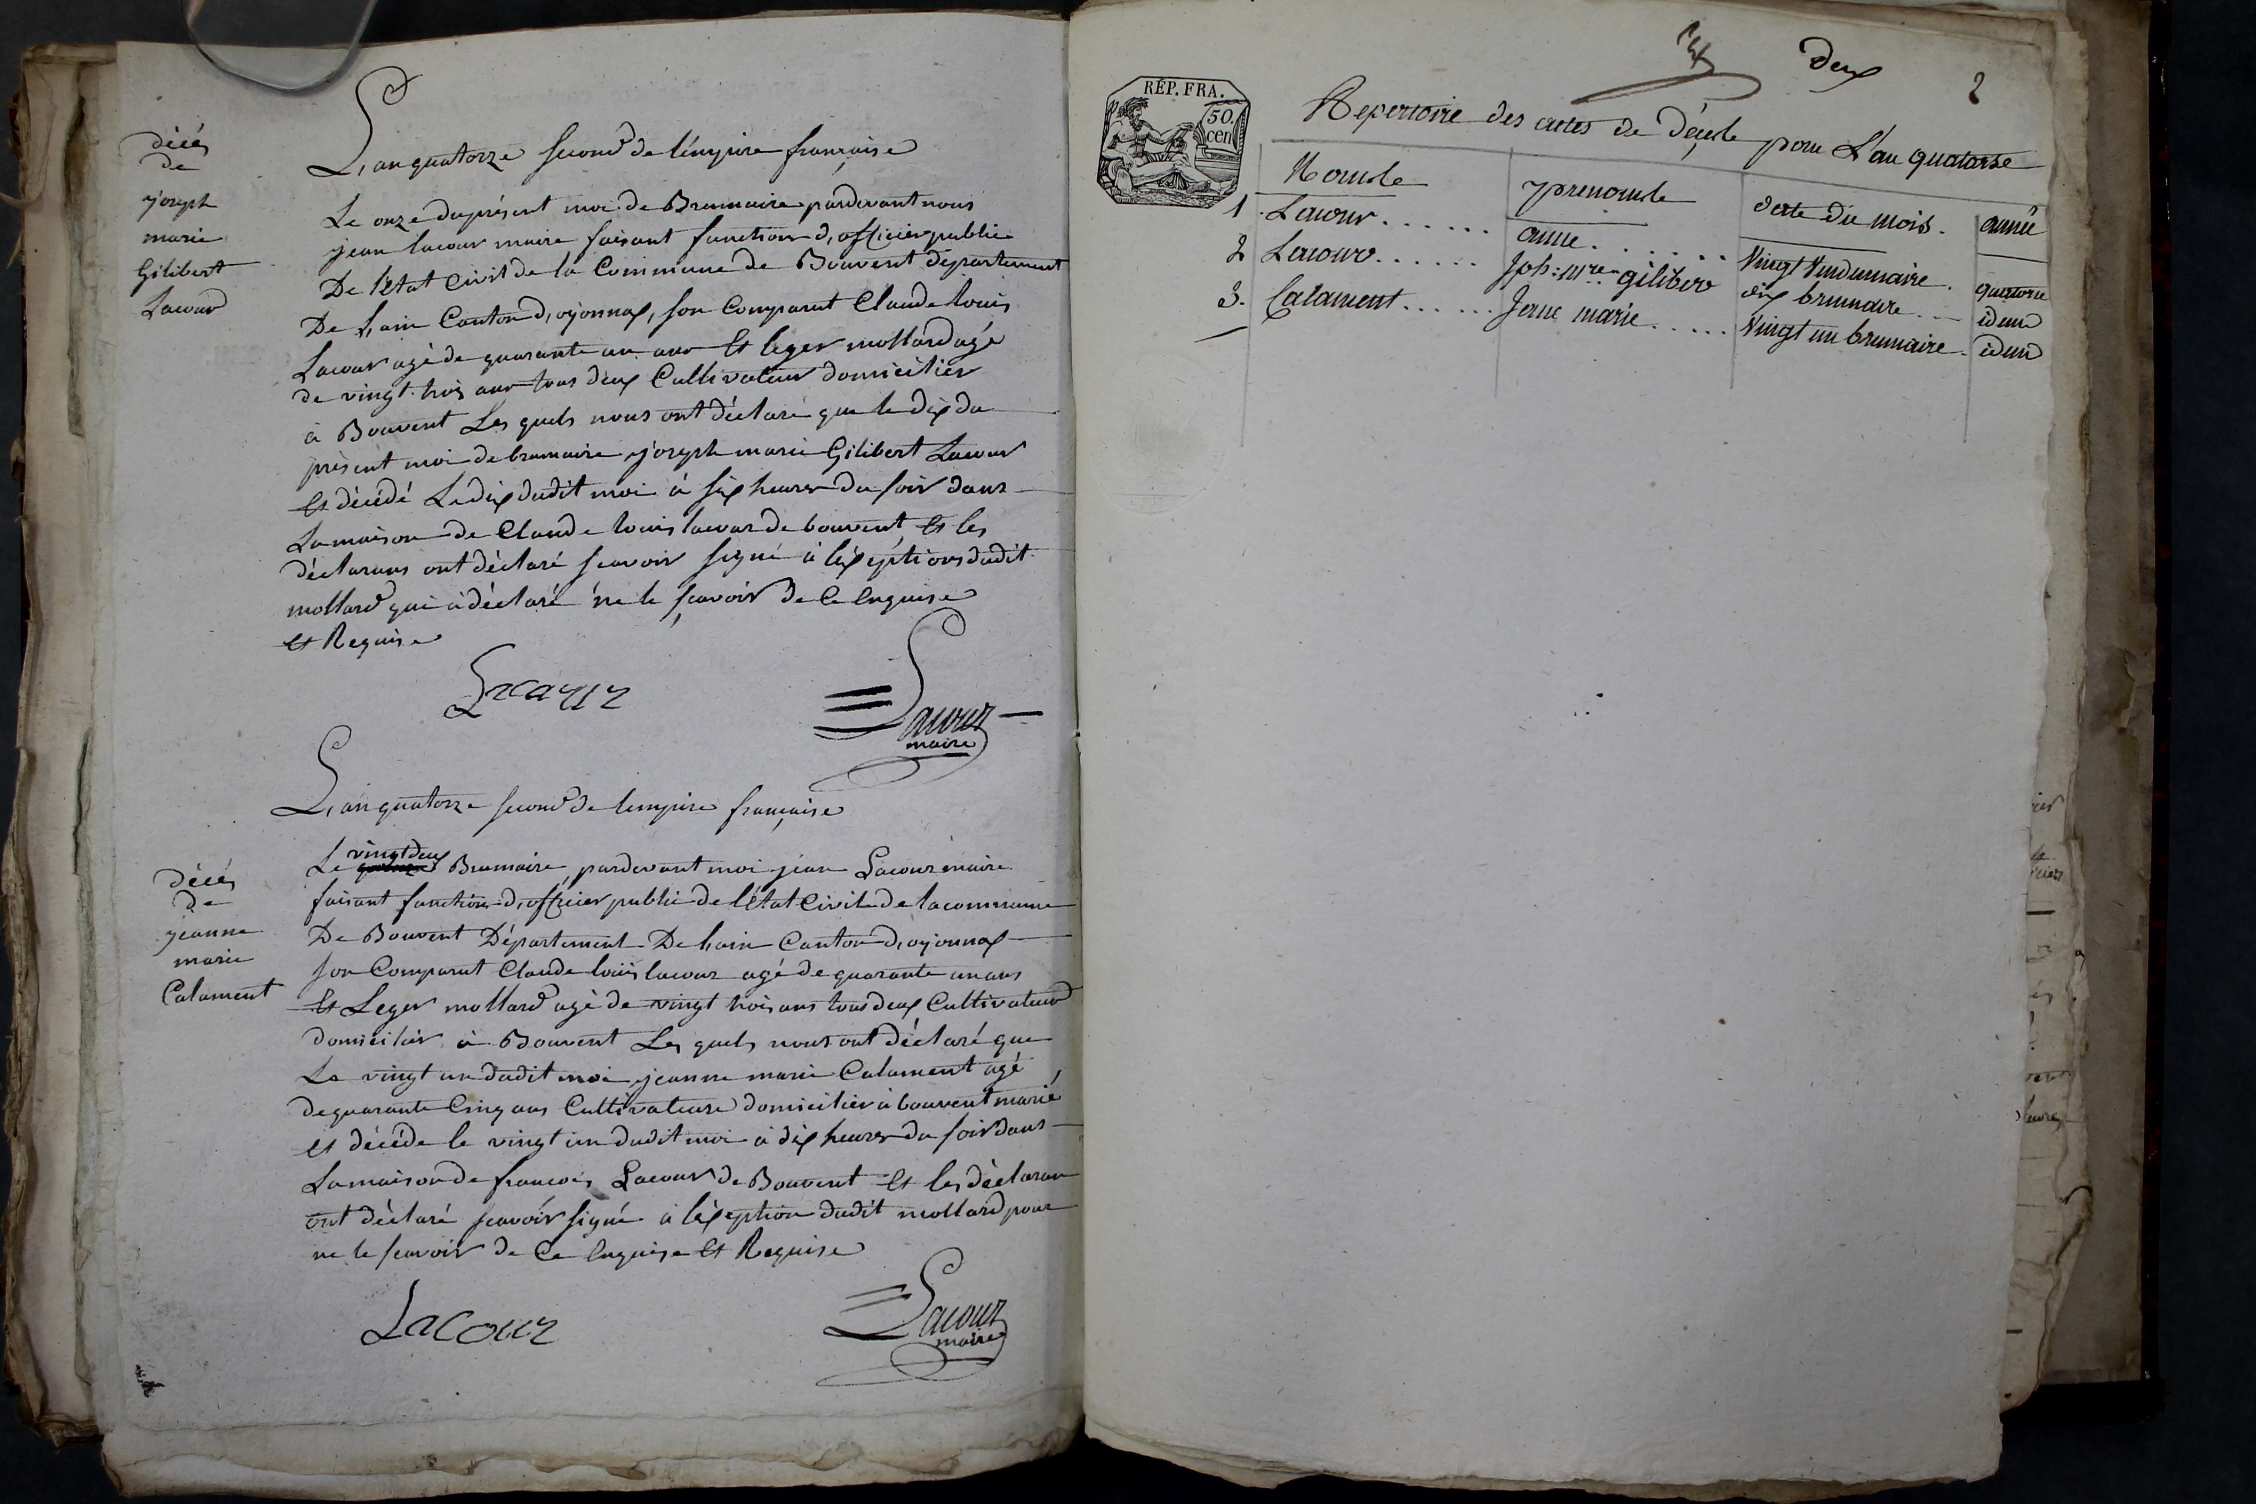 décés
de
joseph
marie
Gilibert
Lacour
L,an quatorze second de l'émpire française
Le onze du présent moi de Brumaire pardevant nous
jean lacour maire faisant function d,officier public
De l'état Civil de la Commune de Bouvent département
De L,ain Canton d,oyonnax, son Comparut Claude louis
Lacour agé de quarante un ans et leger mollard agé
de vingt trois ans tous deux Cultivateur domiciliér
à Bouvent Les quels nous ont déclaré que le dix du
présent moi de brumaire joseph marie Gilibert Lacour
et décédé Le dix dudit moi à six heures du soir dans
La maison de Claude louis lacour de bouvent, et les
déclarans ont déclaré scavoir signé à l'éxéptions dudit
mollard qui à déclaré ne le scavoir de Ce Enquise
et Requise
Lacour
Lacour
maire
L,an quatorze second de l'empire française
décés
de
jeanne
marie
Calament
vingt deux
Le Brumaire, pardevant moi jean Lacour maire
faisant function d,officier public de l'état Civil de la commune
De Bouvent Département De lain Canton d,oyonnax
son Comparut Claude louis lacour agé de quarante un ans
et Leger mollard agé de vingt trois ans tous deux Cultivateur
domiciliér à Bouvent Les quels nous ont déclaré que
Le vingt un dudit moi jeanne marie Calament agé
de quarante Cinq ans Cultivateure domiciliér à bouvent marié
et décéde le vingt un dudit moi à dix heures du soir dans
La maison de francois Lacour de Bouvent et les déclaran
ont déclaré scavoir signé à l'éxéption dudit mollard pour
ne le scavoir de Ce Enquise et Requise
Lacour
Lacour
maire
deux
2
RÉP. FRA.
50.
cen
Repertoire des actes de décés pour L'an quatorse
Noms prenoms date du mois. année
1 Lacour...... anne...... Vingt Vendemiaire. quatorse
2 Lacour...... Jph: mie gilibert dix brumaire... idem
3. Calament...... Jene marie..... Vingt un brumaire. idem